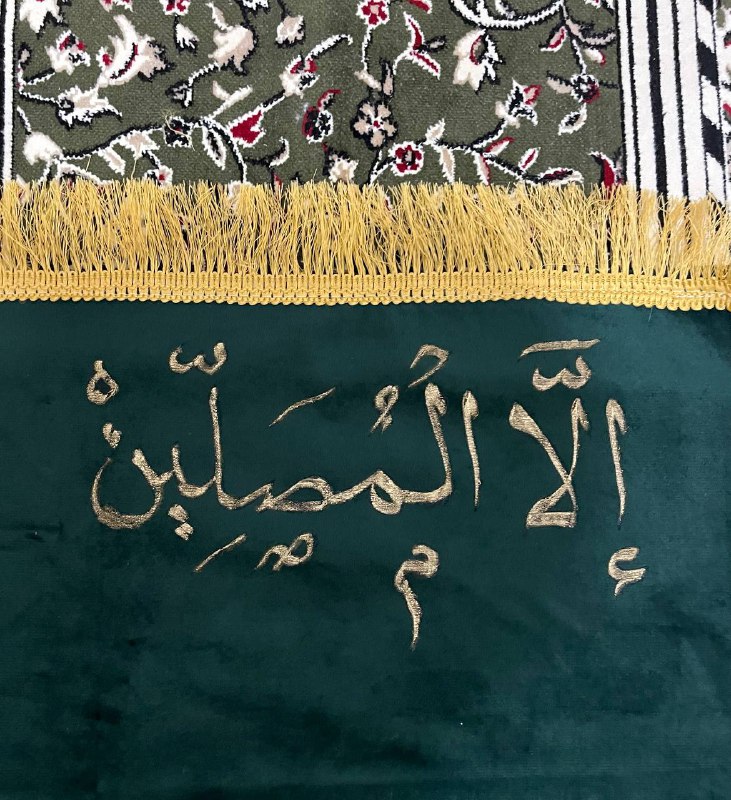 إِلَّا الْمُصَلِّينْ